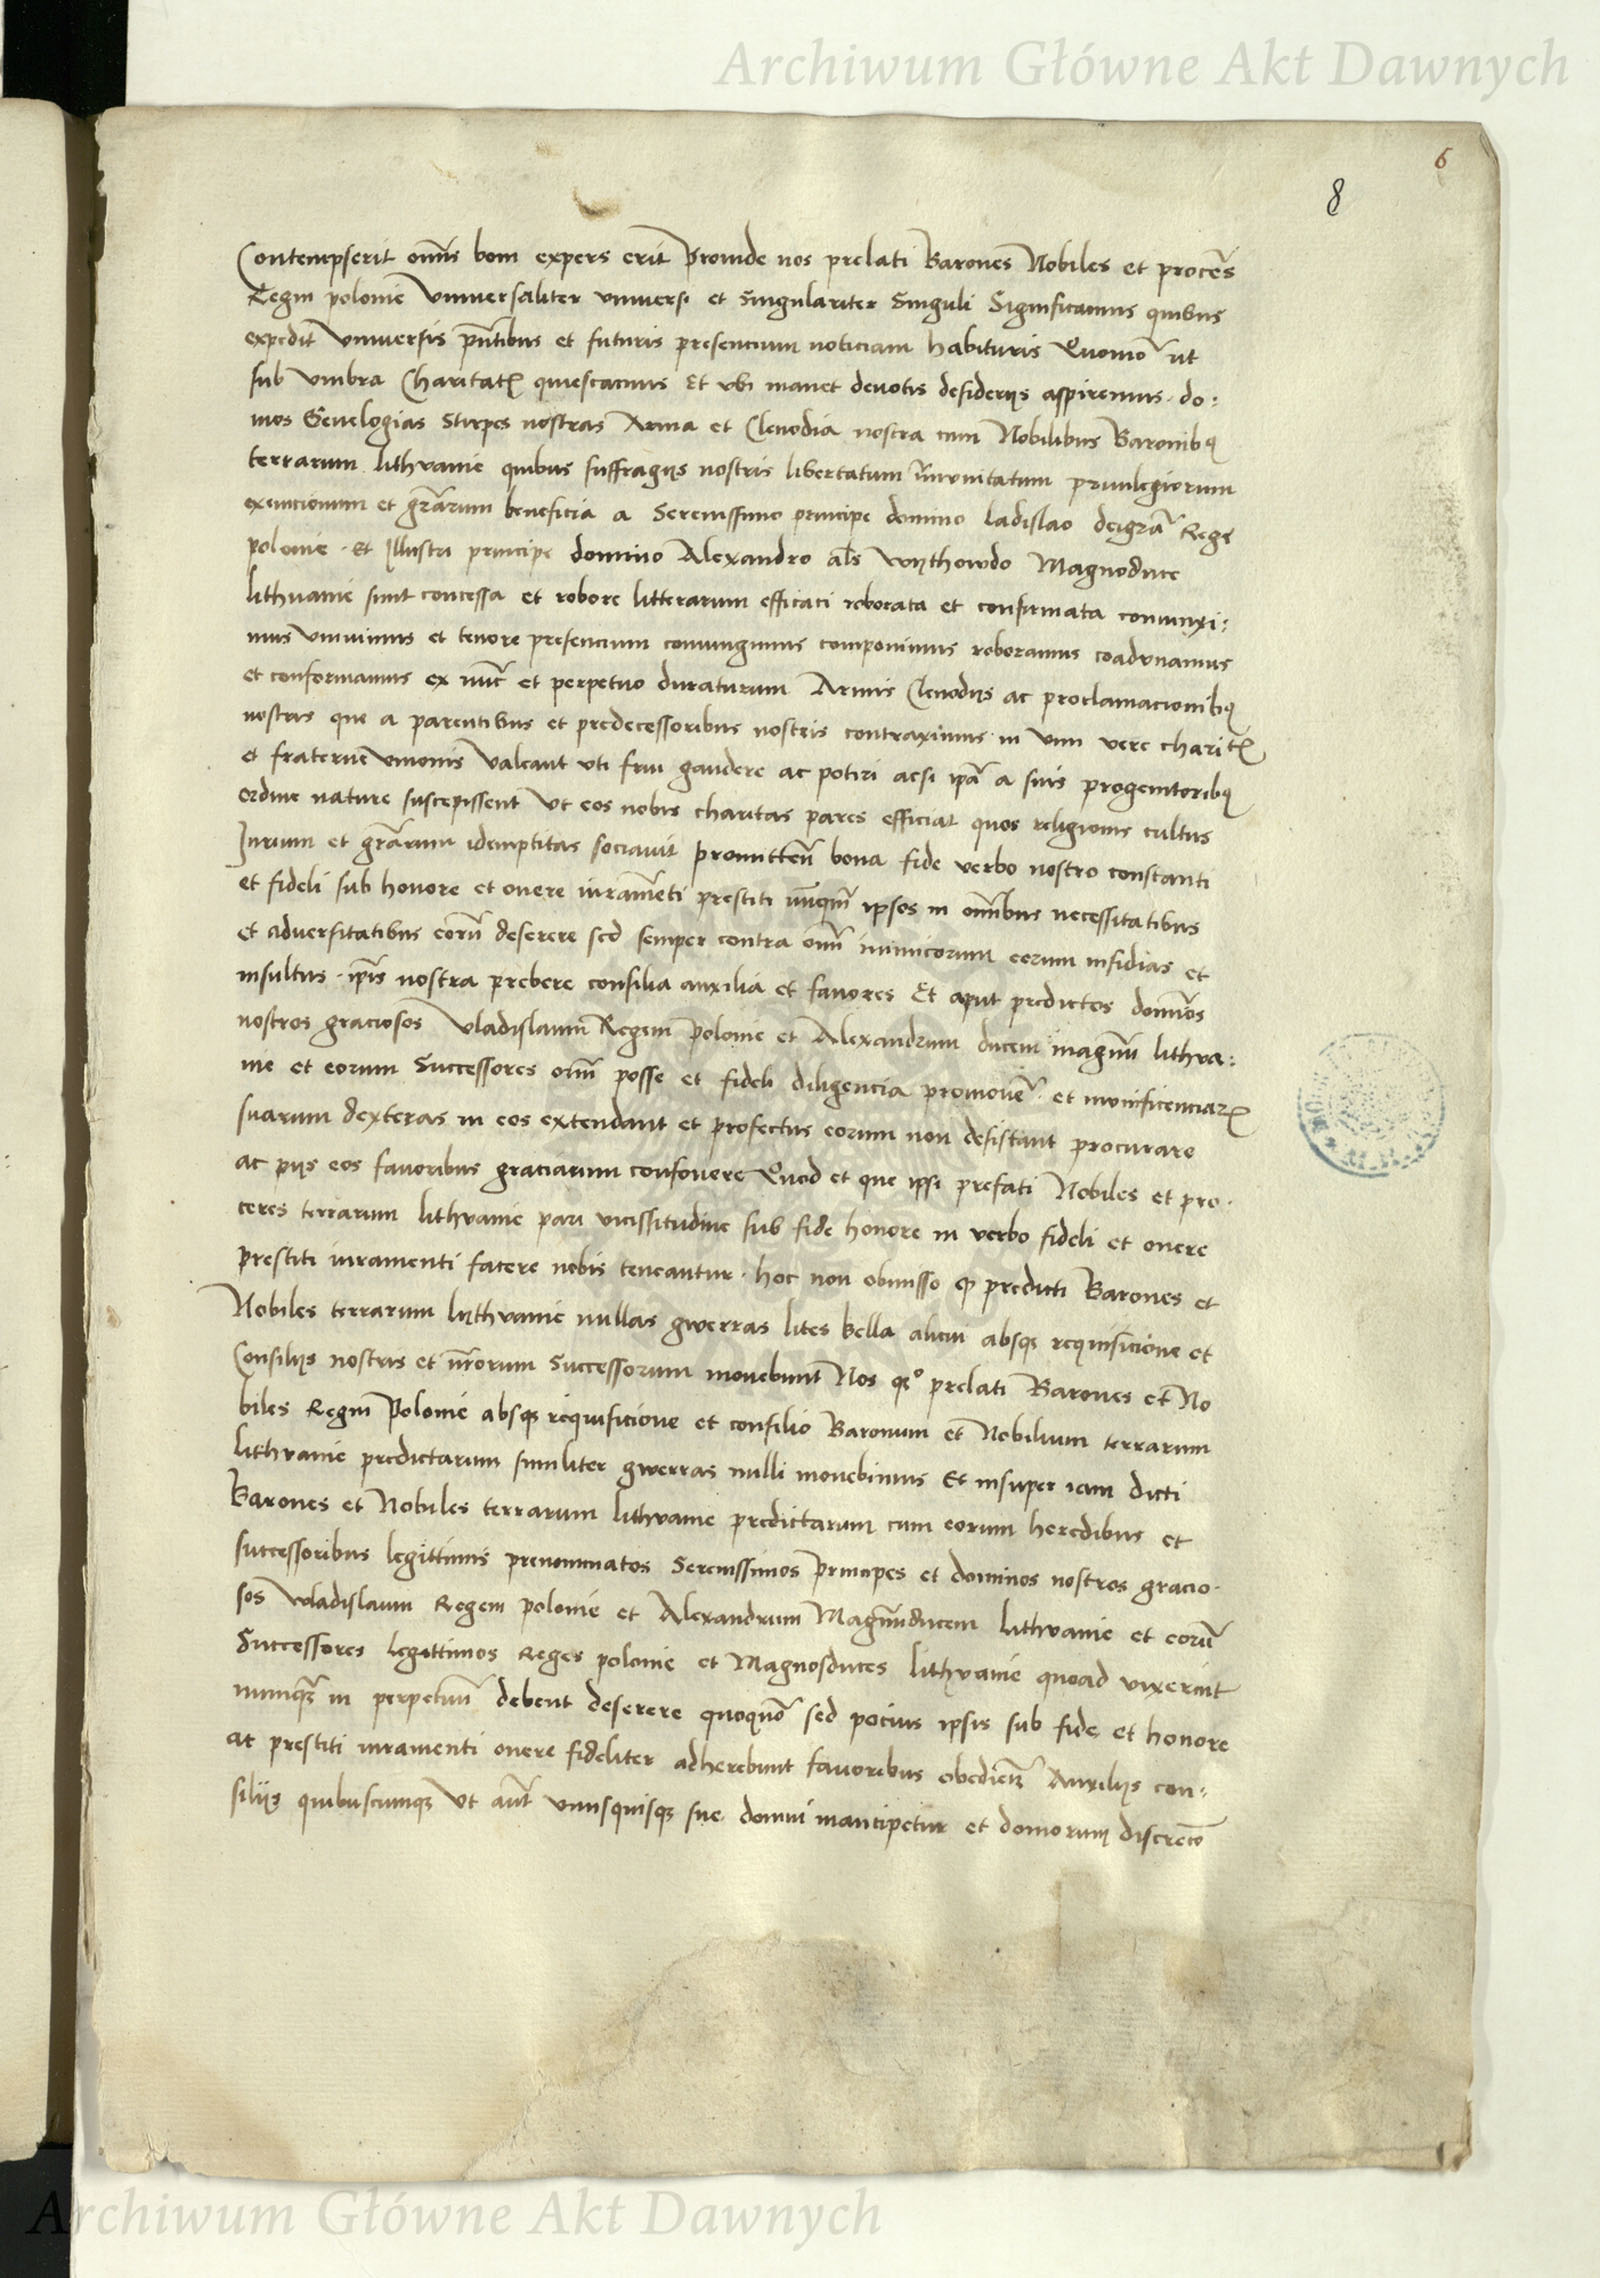 Archiwum Główne Akt Dawnych
6
8
Contempserit om̄is boni expers erit Proinde nos prelati Barones Nobiles et proceres
Regni polonie Vniversaliter vniversi et Singulariter Singuli Significamus quibus
expedit Vniversis pn̄tibus et futuris presencium noticiam habituris Quomō ut
sub vmbra Charitatis quiescamus Et vbi manet devotis desiderijs aspiremus · do:
mos Genelogias Stirpes nostras Arma et Clenodia nostra cum Nobilibus Baronibq
terrarum lithvanie quibus suffragijs nostris libertatum Im̄unitatum privilegiorum
exemcionum et gr̄arum beneficia a Serenissimo principe domino ladislao deigr̄a Rege
polonie · Et Illustri principe domino Alexandro al̄s wythowdo Magnoduce
lithvanie sunt concessa et robore litterarum efficaci roborata et confirmata coniunxi:
mus Vniuimus et tenore presencium coniungimus componimus roboramus coadvnamus
et conformamus ex nūc et perpetuo duraturum Armis Clenodijs ac proclamacionibq
nostris que a parentibus et predecessoribus nostris contraximus · in vim vere charitatis
et fraterne Vnionis Valeant vti frui gaudere ac potiri acsi ip̄a a suis progenitoribq
ordine nature suscepissent Vt eos nobis charitas pares efficiat quos religionis cultus
Iurium et gr̄arum idemptitas sociavit promitten̄ bona fide verbo nostro constanti
et fideli sub honore et onere iuram̄eti prestiti nūqm̄ ipsos in om̄ibus necessitatibus
et adversitatibus eorū deserere sed semper contra om̄ inimicorum eorum insidias et
insultus · ip̄is nostra prebere consilia auxilia et fauores Et aput predictos domīos
nostros graciosos Vladislaum Regem Polonie et Alexandrum ducem magnū lithva:
nie et eorum Successores om̄i posse et fideli diligencia promovē · et munificenciarz
suarum dexteras in eos extendant et profectus eorum non desistant procurare
ac pijs eos fauoribus graciarum confouere Quod et que ipsi prefati Nobiles et pro·
ceres terrarum lithvanie pari vicissitudine sub fide honore in verbo fideli et onere
prestiti iuramenti facere nobis teneantur · hoc non obmisso q predicti Barones et
Nobiles terrarum lythvanie nullas gwerras lites bella alicui absqz requisicione et
Consilijs nostris et nr̄orum Successorum movebunt Nos qo prelati Barones et No
biles Regni Polonie absqz requisicione et consilio Baronum et Nobilium terrarum
lithvanie predictarum similiter gwerras nulli movebimus Et insuper iam dicti
Barones et Nobiles terrarum lithvanie predictarum cum eorum heredibus et
successoribus legittimis prenominatos Serenissimos Principes et dominos nostros gracio·
sos Wladislaum Regem polonie et Alexandrum Magnūducem lithvanie et eorū
Successores legittimos Reges polonie et Magnosduces lithvanie quoad vixerint
nunquā in perpetuū debent deserere quoquō sed pocius ipsis sub fide et honore
ac prestiti iuramenti onere fideliter adherebunt favoribus obedienz Auxilijs con=
silijs quibuscumqz Vt aūt vnusquisqz sue domui mancipetur et domorum discrecō
Archiwum Główne Akt Dawnych